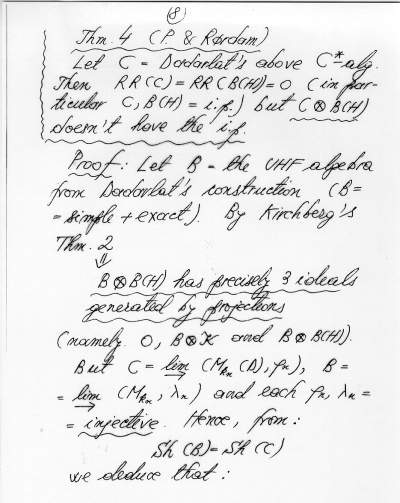 (8)
Thm. 4 (P. & Rørdam)
Let C = Dadarlat's above C*-alg.
Then RR(C) = RR(B(H)) = 0 (in par-
ticular C, B(H) = i.p.) but C ⊗ B(H)
doesn't have the i.p.
Proof: Let B = the UHF algebra
from Dadarlat's construction (B =
= simple + exact). By Kirchberg's
Thm. 2
⇓
B ⊗ B(H) has precisely 3 ideals
generated by projections
(namely 0, B ⊗ K and B ⊗ B(H)).
But C = lim→ (M_{k_n}(D), φ_n), B =
= lim→ (M_{k_n}, λ_n) and each φ_n, λ_n =
= injective. Hence, from:
Sh(B) = Sh(C)
we deduce that: